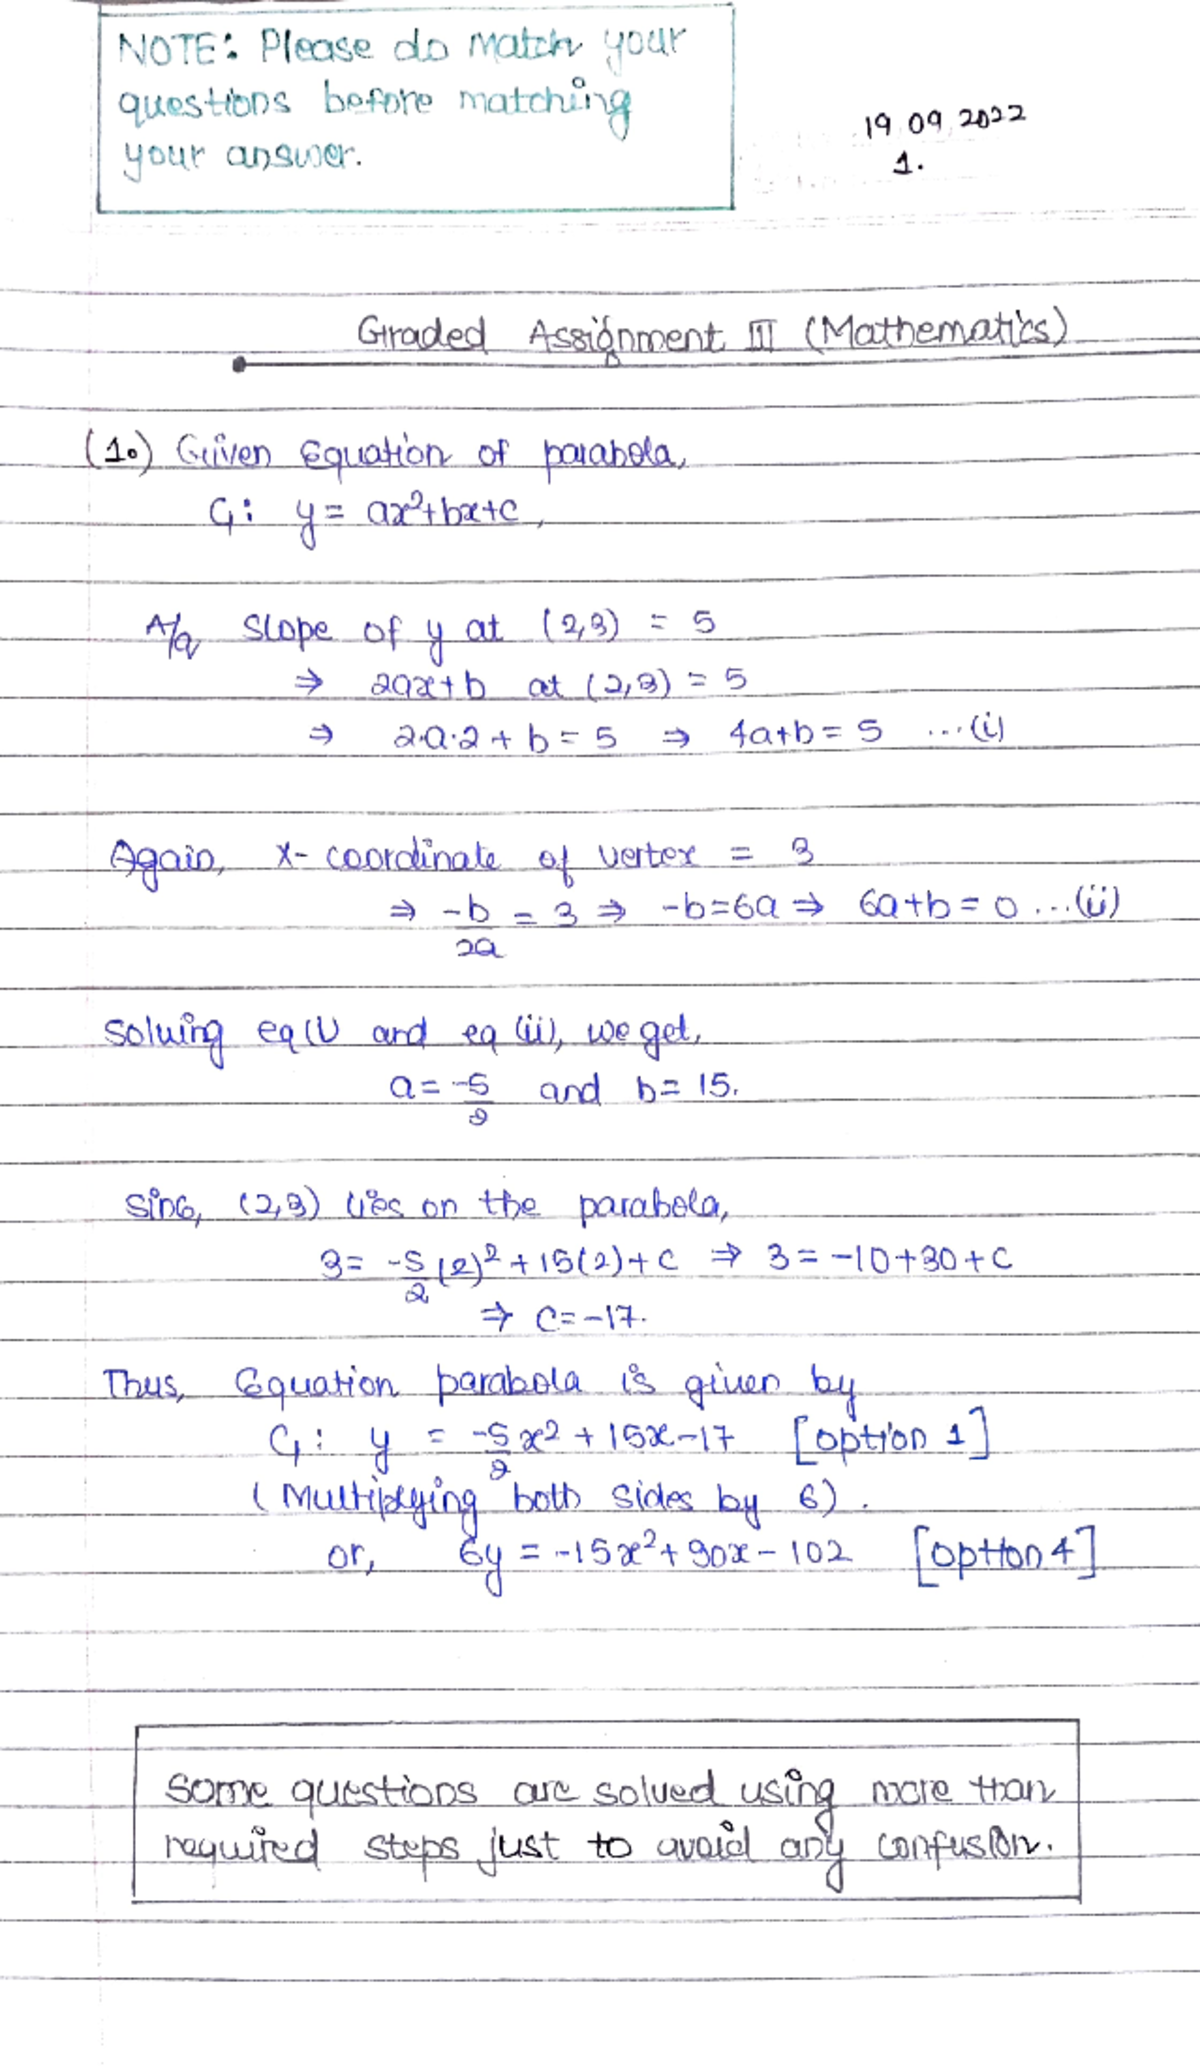 NOTE: Please do match your
questions before matching
your answer.
19.09.2022
1.
Graded Assignment III (Mathematics)
(1.) Given Equation of parabola,
G: y = ax²+bx+c,
A/q slope of y at (2,3) = 5
⇒ 2ax+b at (2,3) = 5
⇒ 2·a·2 + b = 5 ⇒ 4a+b = 5 ...(i)
Again, x-coordinate of vertex = 3
⇒ -b/2a = 3 ⇒ -b=6a ⇒ 6a+b = 0 ...(ii)
Solving eq (i) and eq (ii), we get,
a = -5/2 and b = 15.
Sinc, (2,3) lies on the parabola,
3 = -5/2 (2)² + 15(2) + c ⇒ 3 = -10+30+c
⇒ c = -17.
Thus, Equation parabola is given by
G: y = -5/2 x² + 15x-17 [option 1]
(Multiplying both sides by 6).
or, 6y = -15x²+90x-102 [option 4]
Some questions are solved using more than
required steps just to avoid any confusion.